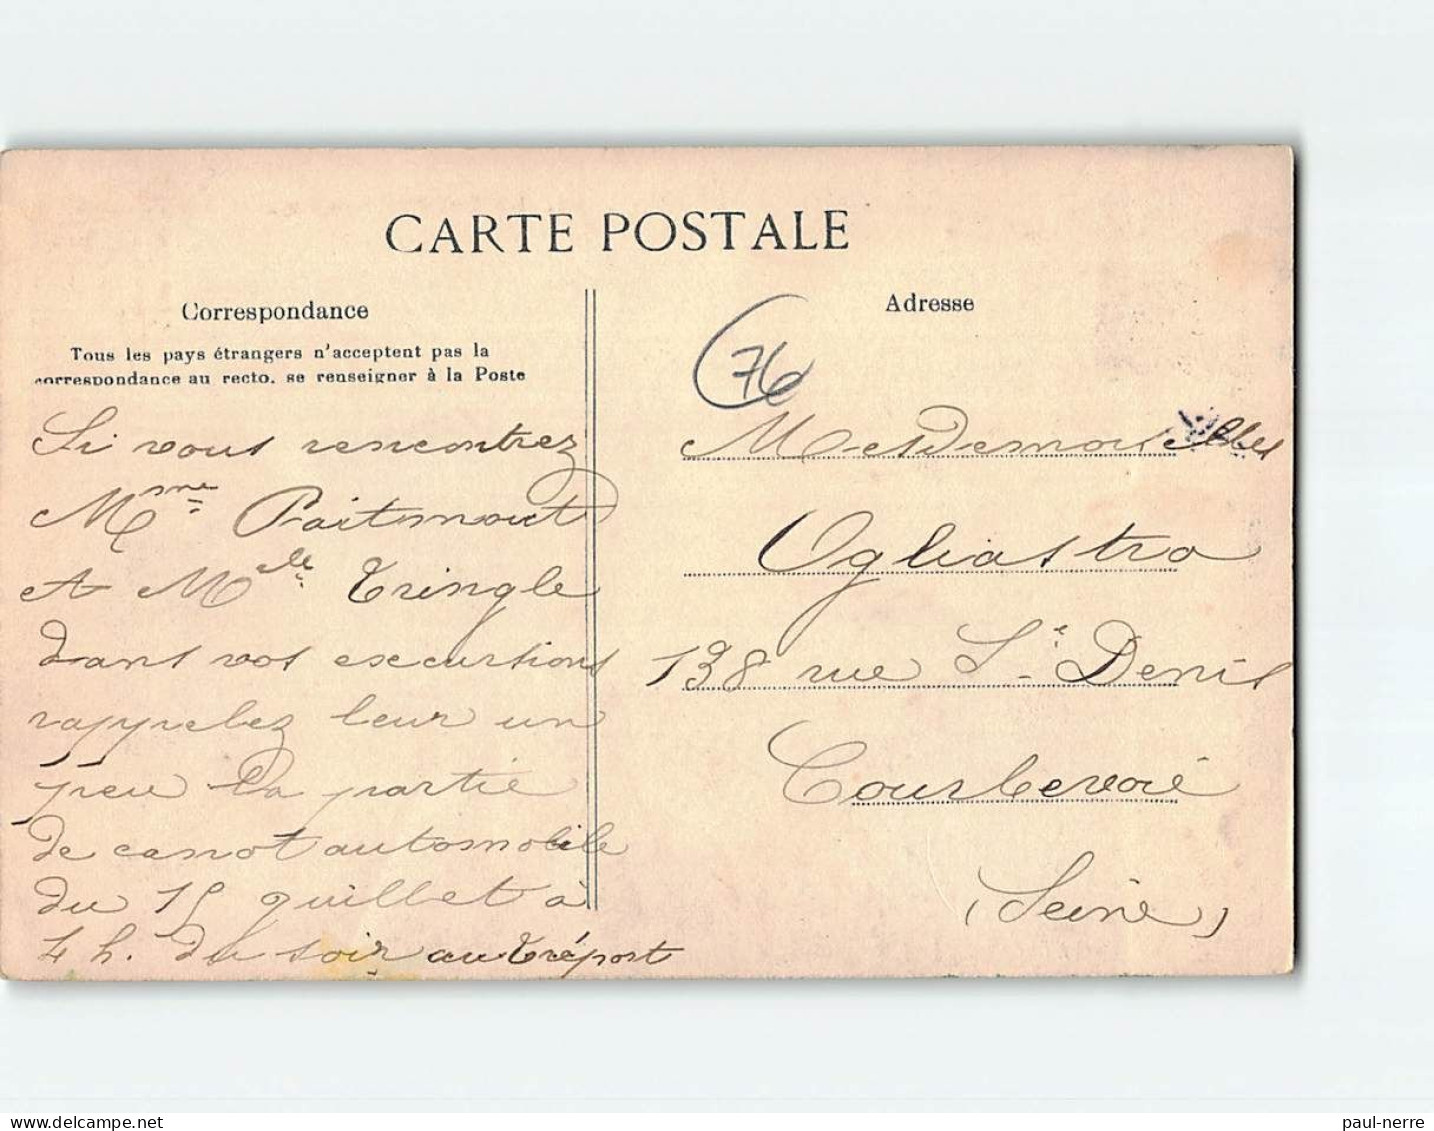 CARTE POSTALE
Correspondance
Tous les pays étrangers n'acceptent pas la
correspondance au recto, se renseigner à la Poste
Si vous rencontrez
Mme Faitmout
et Melle Tringle
dans vos excursions
rappelez leur un
peu la partie
de canot automobile
du 15 juillet à
4 h. du soir au Tréport
Adresse
76
Mesdemoiselles
Ogliastro
138 rue St Denis
Courbevoie
(Seine)
paul-nerre